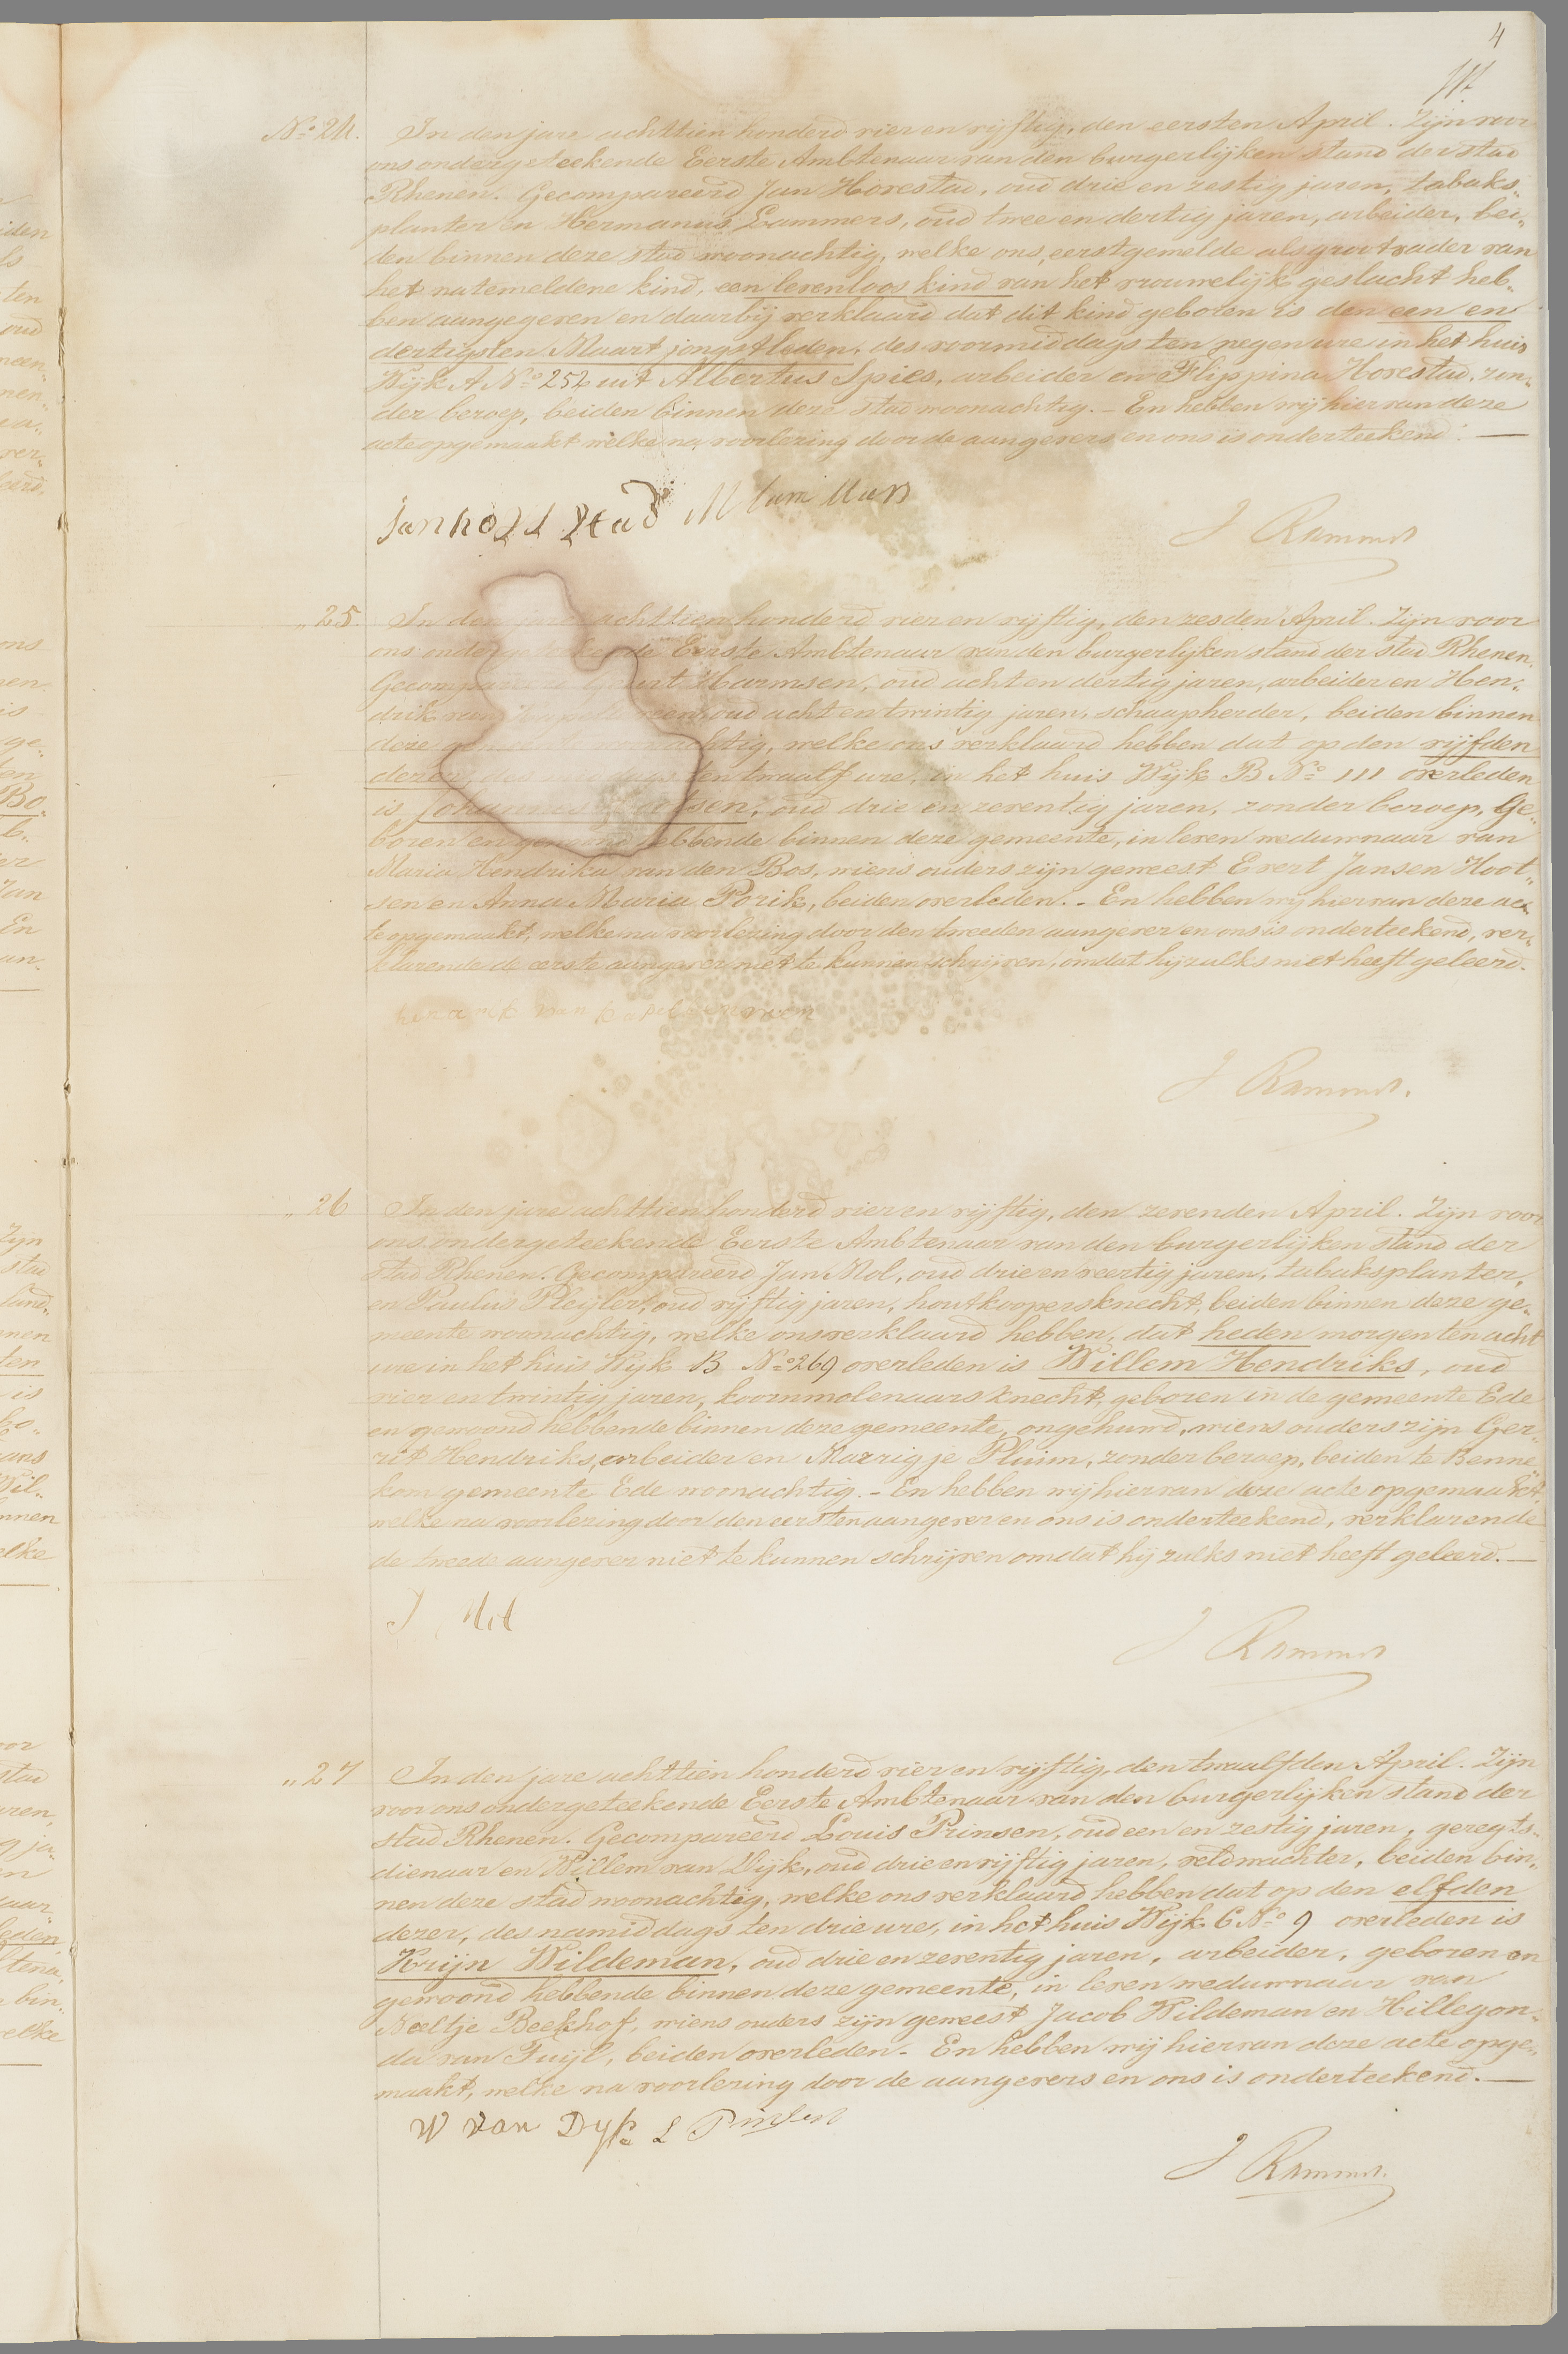 4
No 24. In den jare achttien honderd vier en vijftig, den eersten April. Zijn voor
ons ondergeteekende Eerste Ambtenaar van den burgerlijken stand der stad
Rhenen. Gecompareerd Jan Hovestad, oud drie en zestig jaren, tabaks„
planter en Hermanus Lammers, oud twee en dertig jaren, arbeider, bei„
den binnen deze stad woonachtig, welke ons, eerstgemelde als grootvader van
het natemeldene kind, een levenloos kind van het vrouwelijk geslacht heb„
ben aangegeven en daarbij verklaard dat dit kind geboren is den een en
dertigsten Maart jongstleden, des voormiddags ten negen ure in het huis
Wijk A No 252 uit Albertus Spies, arbeider en Flippina Hovestad, zon„
der beroep, beiden binnen deze stad woonachtig. – En hebben wij hiervan deze
acte opgemaakt welke na voorlezing door de aangevers en ons is onderteekend. —
J Rammes
„ 25. In den jare achttien honderd vier en vijftig, den zesden April. Zijn voor
ons ondergeteekende Eerste Ambtenaar van den burgerlijken stand der stad Rhenen.
Gecompareerd Harmsen, oud acht en dertig jaren, arbeider en Hen„
drik van oud acht en twintig jaren, schaapherder, beiden binnen
deze gemeente woonachtig, welke ons verklaard hebben dat op den vijfden
dezer, des middags ten twaalf ure, in het huis Wijk B No 111 overleden
is Johannes oud drie en zeventig jaren, zonder beroep, ge„
boren en gewoond hebbende binnen deze gemeente, in leven weduwnaar van
Maria Hendrika van den Bos, wiens ouders zijn geweest Evert Jansen Hoot„
sen en Anna Maria Porik, beiden overleden. – En hebben wij hiervan deze ac„
te opgemaakt, welke na voorlezing door den tweeden aangever en ons is onderteekend, ver„
klarende de eerste aangever niet te kunnen schrijven, omdat hij zulks niet heeft geleerd.
J Rammes.
„ 26 In den jare achttien honderd vier en vijftig, den zevenden April. Zijn voor
ons ondergeteekende Eerste Ambtenaar van den burgerlijken stand der
stad Rhenen. Gecompareerd Jan Mol, oud drie en veertig jaren, tabaksplanter,
en Paulus Pleijler, oud vijftig jaren, houtkoopersknecht, beiden binnen deze ge„
meente woonachtig, welke ons verklaard hebben, dat heden morgen ten acht
ure in het huis Wijk B No 269 overleden is Willem Hendriks, oud
vier en twintig jaren, koornmolenaars knecht, geboren in de gemeente Ede
en gewoond hebbende binnen deze gemeente, ongehuwd, wiens ouders zijn Ger„
rit Hendriks, arbeider en Marrigje Pluim, zonder beroep, beiden te Benne„
kom gemeente Ede woonachtig. – En hebben wij hiervan deze acte opgemaakt,
welke na voorlezing door den eersten aangever en ons is onderteekend, verklarende
de tweede aangever niet te kunnen schrijven omdat hij zulks niet heeft geleerd. —
J Mol
J Rammes
„ 27 In den jare achttien honderd vier en vijftig, den twaalfden April. Zijn
voor ons ondergeteekende Eerste Ambtenaar van den burgerlijken stand der
stad Rhenen. Gecompareerd Louis Prinsen, oud een en zestig jaren, geregts„
dienaar en Willem van Dijk, oud drie en vijftig jaren, veldwachter, beiden bin„
nen deze stad woonachtig, welke ons verklaard hebben dat op den elfden
dezer, des namiddags ten drie ure, in het huis Wijk C No 9 overleden is
Krijn Wildeman, oud drie en zeventig jaren, arbeider, geboren en
gewoond hebbende binnen deze gemeente, in leven weduwnaar van
Neeltje Beekhof, wiens ouders zijn geweest Jacob Wildeman en Hillegon„
da van Tuijl, beiden overleden. En hebben wij hiervan deze acte opge„
maakt, welke na voorlezing door de aangevers en ons is onderteekend. —
W van Dyk L Prinsen
J Rammes.